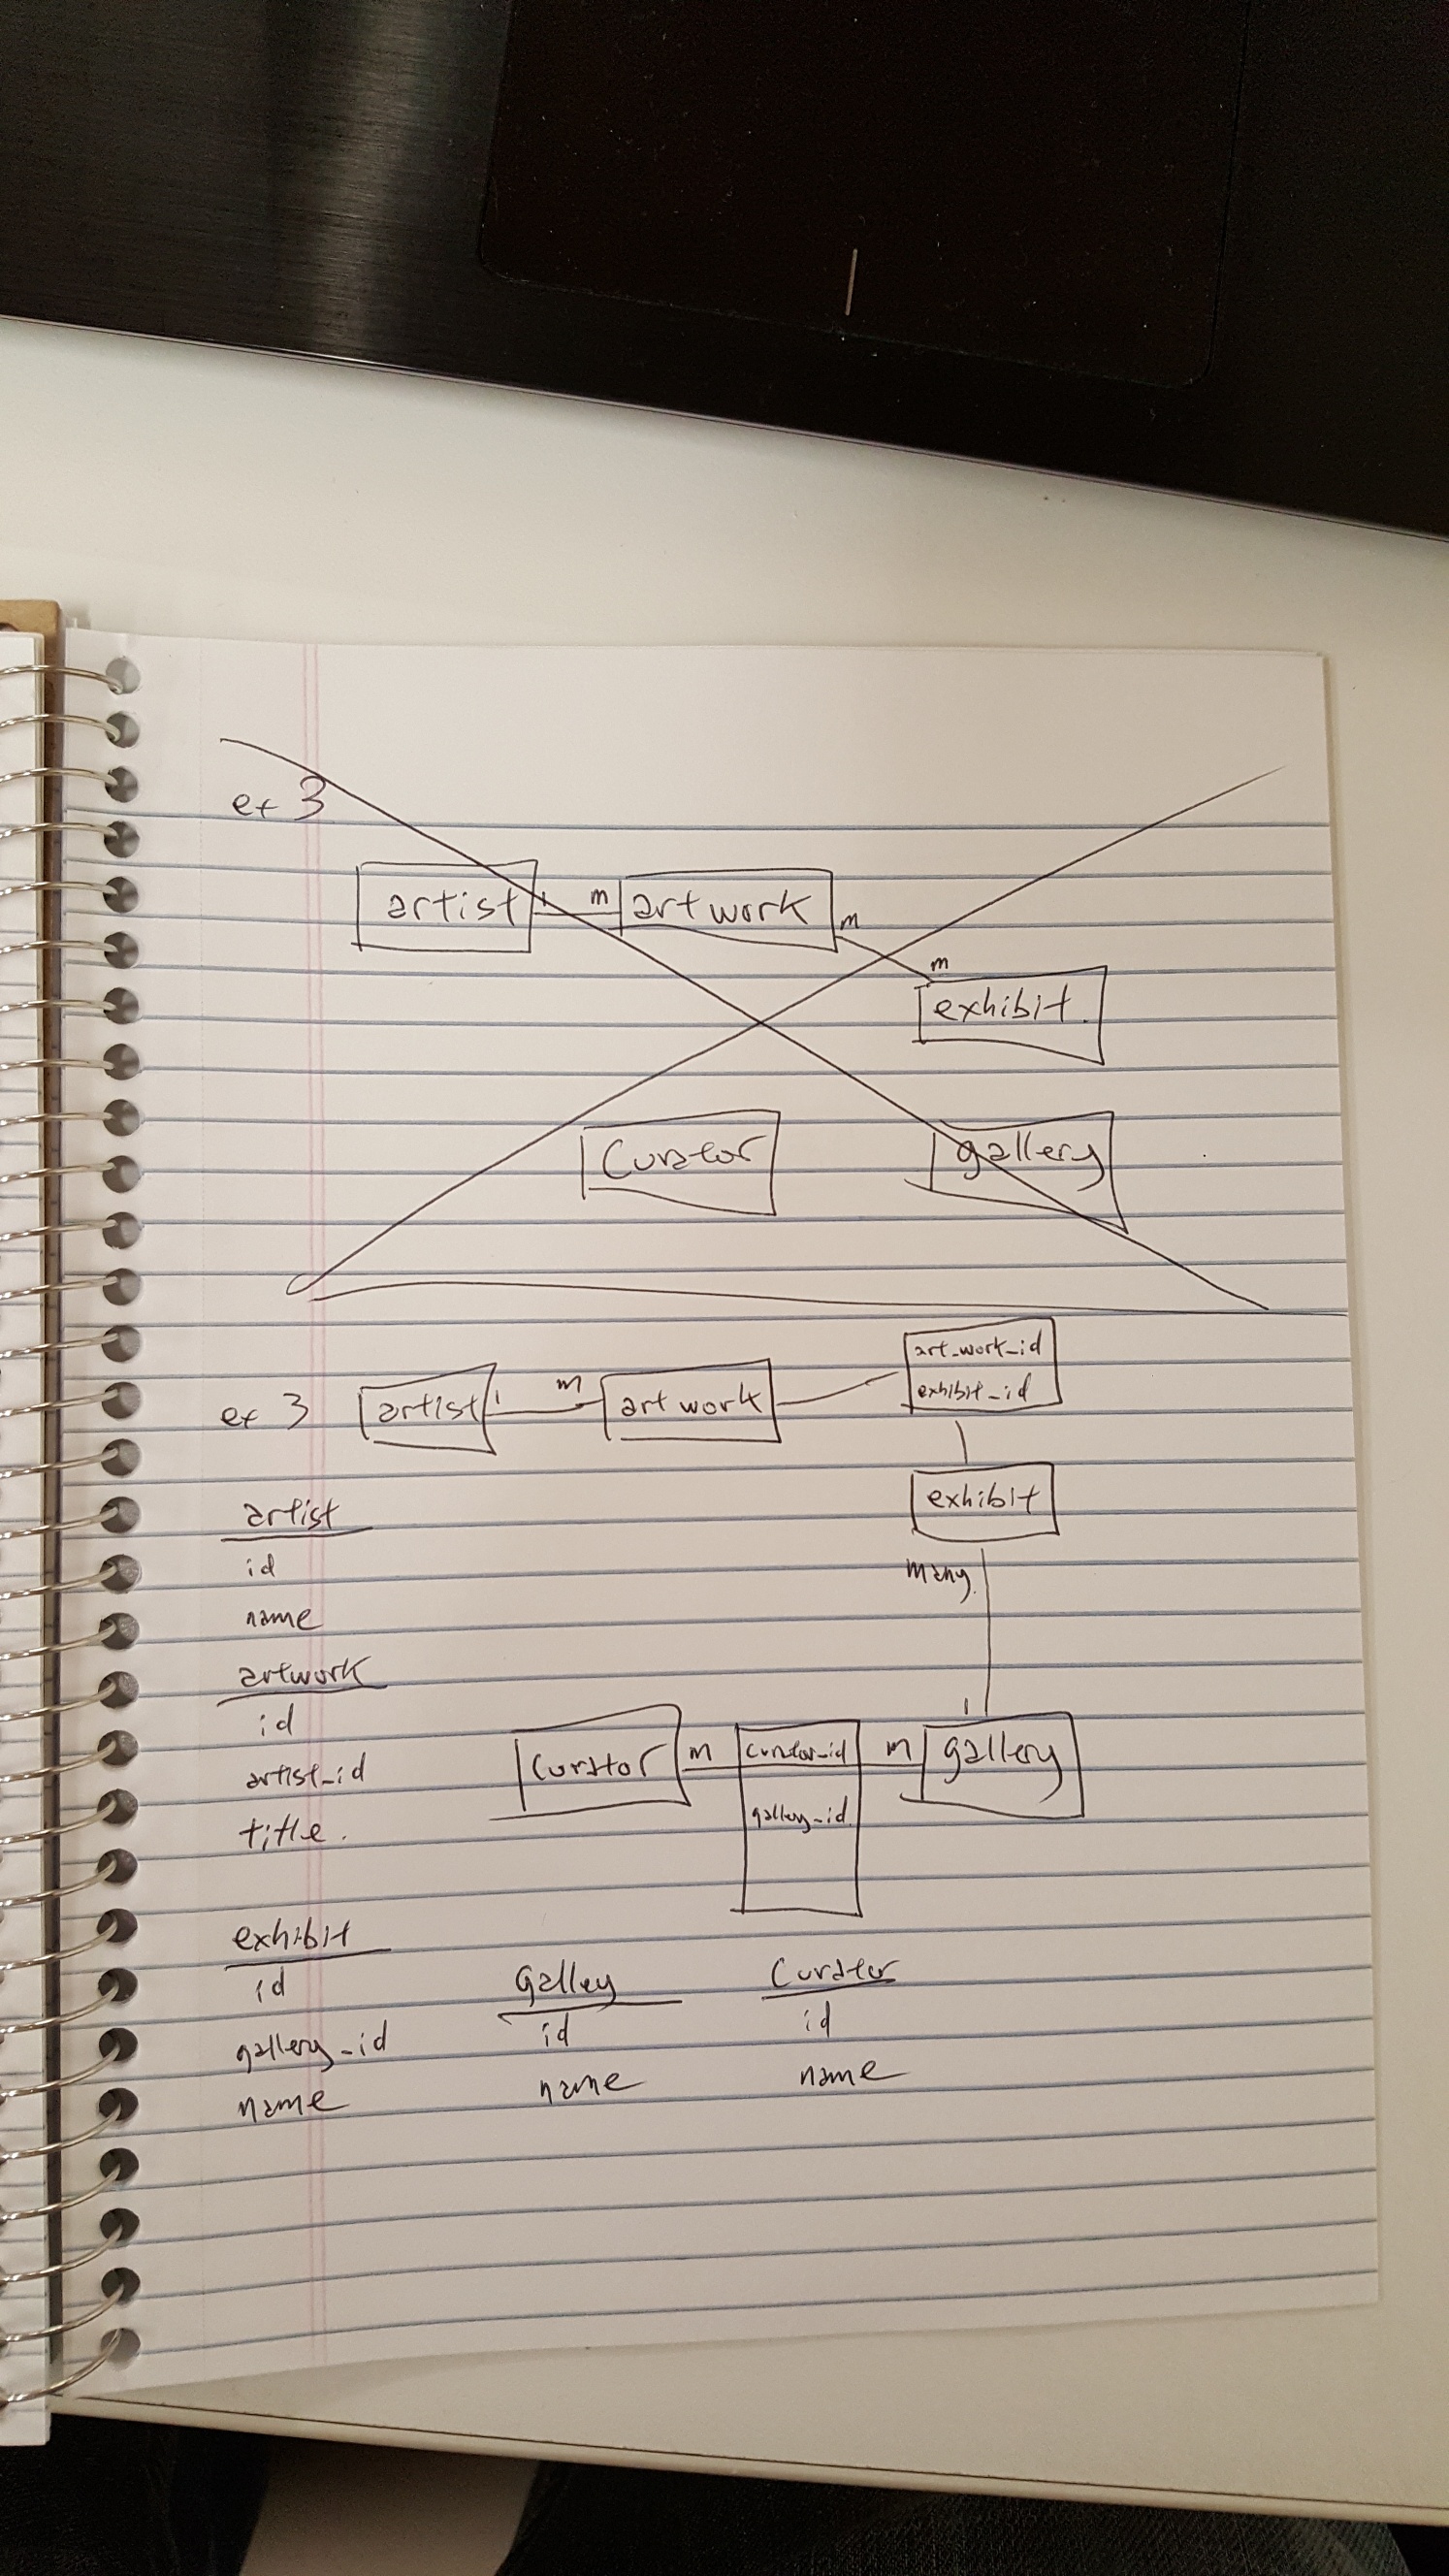 ex 3
artist 1 m artwork m
m
exhibit.
Curator gallery
art_work_id
exhibit_id
ex 3 artist 1 m artwork
exhibit
many.
1
Curator m curator_id m gallery
gallery_id.
artist
id
name
artwork
id
artist_id
title.
exhibit
id
gallery_id
name
Galley
id
name
Curator
id
name